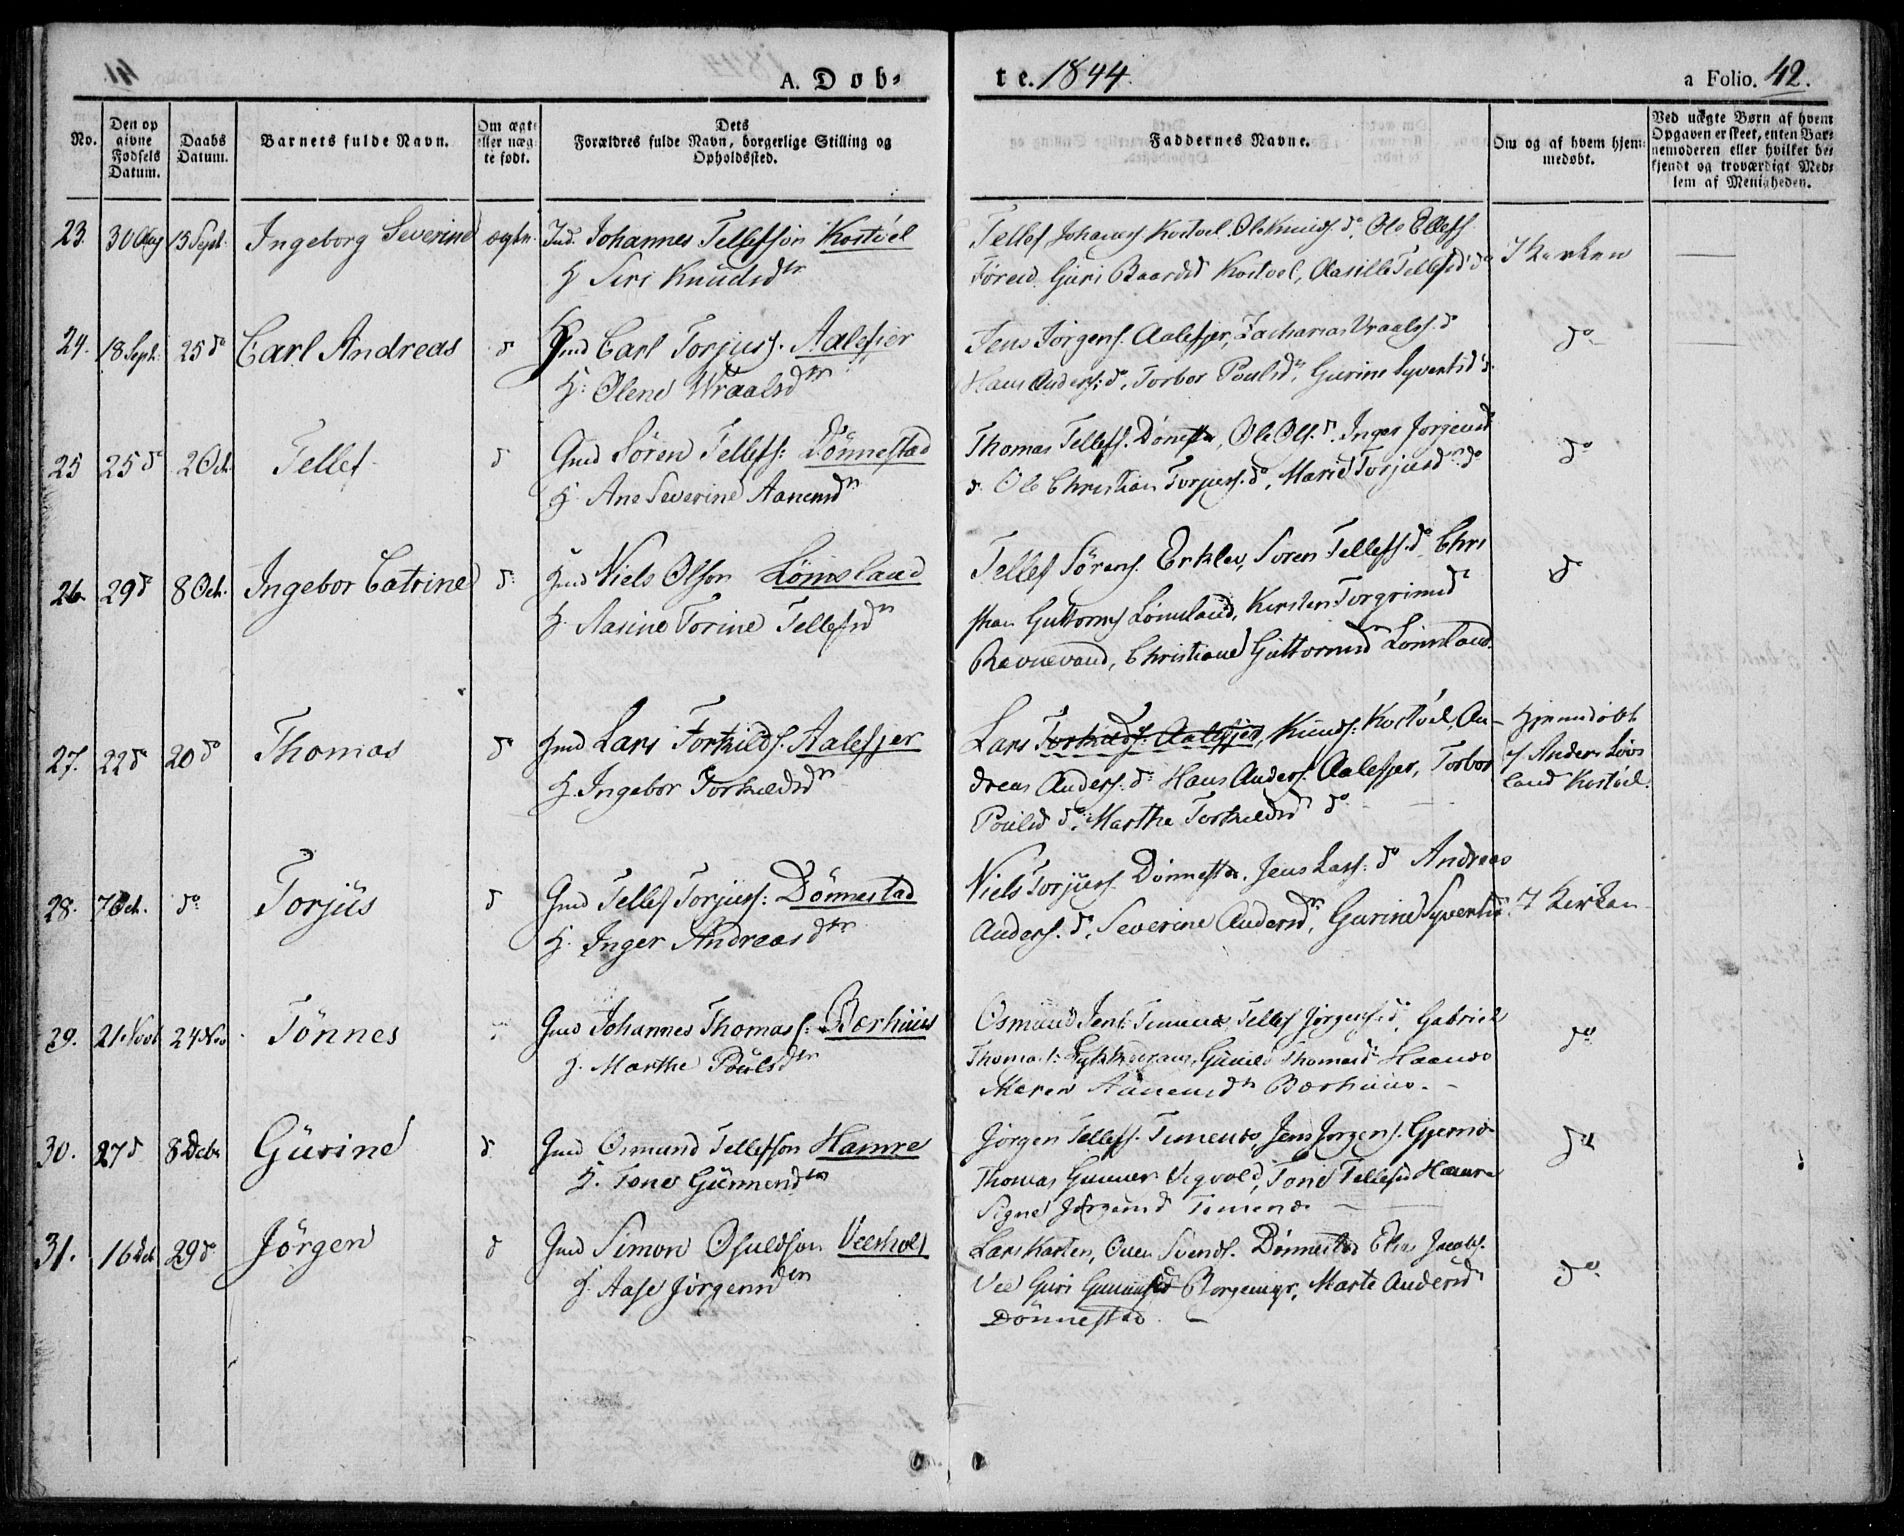 A. Døb-
te. 1844.
a Folio. 42.
No.
Den op
givne
Fødsels
Datum.
Daabs
Datum.
Barnets fulde Navn.
Om ægte
eller uæg
te født.
Dets
Forældres fulde Navn, borgerlige Stilling og
Opholdssted.
Faddernes Navne.
Om og af hvem hjem-
medøbt.
Ved uægte Børn af hvem
Opgaven er skeet, enten Bar-
nemoderen eller hvilket be-
kjendt og troværdigt Med-
lem af Menigheden.
23. 30 Aug 15 Sept. Ingeborg Severine ægte. Ind. Johannes Tellefson Kostøl
H Siri Knudsdtr
Tellef Johans Kostøl. Ole Knuds do. Ole Ellefs
Guri Baardsd Kostøl, Aasille Tellefsd do
I Kirken
24. 18 Sept. 25 do Carl Andreas d Gmd Carl Torjus. Aalefjer
H. Olene Wraalsdtr
Jens Jørgens. Aalefjer, Zacharias Vraals. do
Hans Anders. do, Torbor Poulsd, Gurine Syvertsd do.
do
25 25 do 2 Oct. Tellef d Gmd Søren Tellefs: Dønnestad
H. Ane Severine Aanensdtr
Thomas Tellefs. Dønnesta, Ole Ols. d. Inger Jørgensd
d. Ole Christian Torjus. do, Marie Torjusdtr do
do
26. 29 d 8 Oct. Ingebor Catrine d. Gmd Niels Olson Lømsland
H. Aasine Torine Tellefsdtr
Tellef Sørens. Erklev, Soren Tellefs. do Chri
stian Guttorms Lømsland, Kirsten Torgrimsd
Ravnevand, Christiane Guttormsd Lømsland.
d
27. 22 d 20 do Thomas d Gmd Lars Torkilds. Aalefjer
H. Ingebor Torkildsdtr
Lars Torkilds: Aalefjer, Knuds: Kostøl, An-
dreas Anders. do Hans Anders. Aalefjer, Torbor
Poulsd do. Marthe Torkildsd do
Hjemmedøbt
af Anders Løvs
land Kostøl.
28. 7 Oct. do Torjus d Gmd Tellef Torjus: Dønnestad
H. Inger Andreasdtr
Niels Torjus. Dønnesta. Jens Lars: do Andreas
Anders. d. Severine Andersd, Gurine Syvertsd.
I Kirken
29. 21 Novb 24 Nov Tønnes Gmd Johannes Thomass: Bærhuus
H. Marthe Poulsdtr
Osmund Jens: Timenes, Tellef Jørgens d. Gabriel
Thomas: Gunild Thomasd Haanes
Maren Aanensdtr Bærhuus.
do
30. 27 d 8 Decb Gurine d Gmd Osmund Tellefson Hamre
H. Tone Gunnersdtr
Jørgen Tellefs. Timenes, Jens Jørgens. Gjerno
Thomas Gunner Vigvold, Tone Tellefsd Hamre
Signe Jørgensd Timenes
do
31. 16 Dcb 29 d Jørgen d Gmd Simon Osuldson Veerholt
H. Aase Jørgensdtr
Lars Karsten, Ouen Svends. Dønnestad Elias Jacobs.
Vee Guri Gunnersd Borgemyr, Marte Andersd
Dønnestad.
do